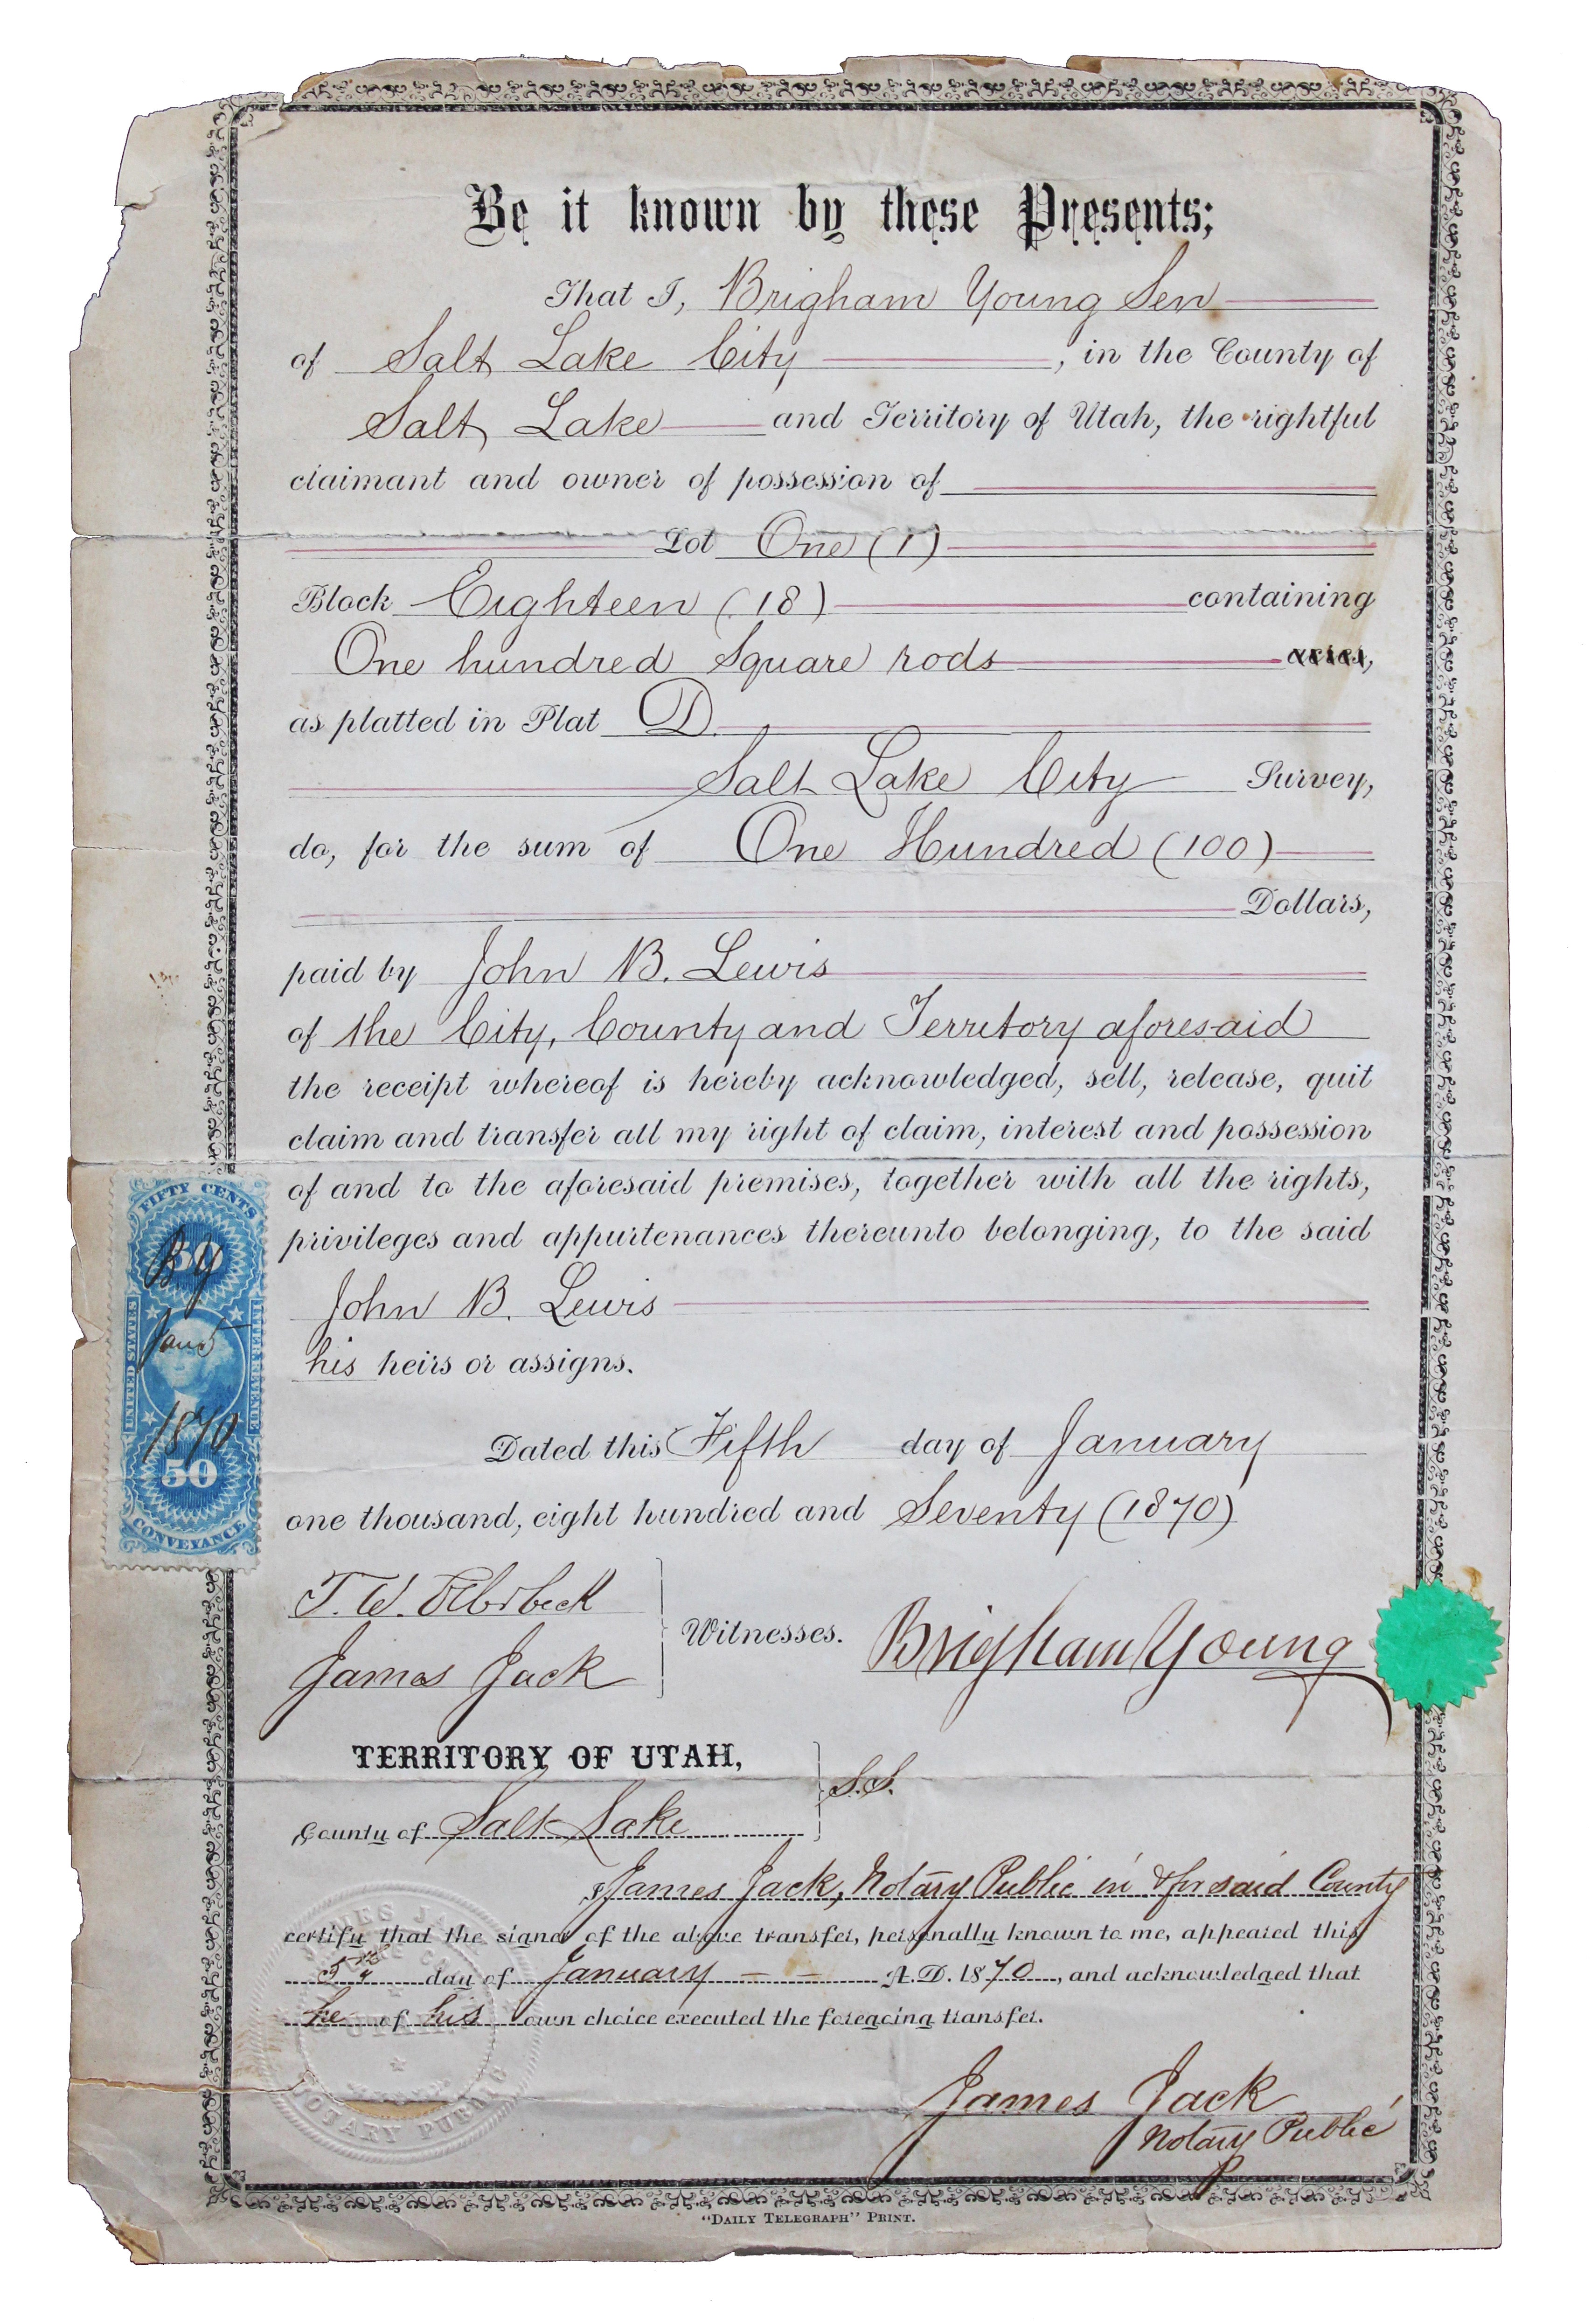 Be it known by these Presents;
That I, Brigham Young Sen
of Salt Lake City, in the County of
Salt Lake and Territory of Utah, the rightful
claimant and owner of possession of
Lot One (1)
Block Eighteen (18) containing
One hundred Square rods acres,
as platted in Plat D
Salt Lake City Survey,
do, for the sum of One Hundred (100)
Dollars,
paid by John B. Lewis
of the City, County and Territory aforesaid
the receipt whereof is hereby acknowledged, sell, release, quit
claim and transfer all my right of claim, interest and possession
of and to the aforesaid premises, together with all the rights,
privileges and appurtenances thereunto belonging, to the said
John B. Lewis
his heirs or assigns.
Dated this Fifth day of January
one thousand, eight hundred and Seventy (1870)
FIFTY CENTS
50
UNITED STATES
INTER. REVENUE
B Y
Jan 5
1870
50
CONVEYANCE
T. W. Ellerbeck
James Jack
Witnesses.
Brigham Young
TERRITORY OF UTAH,
S.S.
County of Salt Lake
I James Jack, Notary Public in & for said County
certify that the signer of the above transfer, personally known to me, appeared this
5th day of January A.D. 1870, and acknowledged that
he of his own choice executed the foregoing transfer.
James Jack
Notary Public
UTAH
NOTARY PUBLIC
"DAILY TELEGRAPH" PRINT.